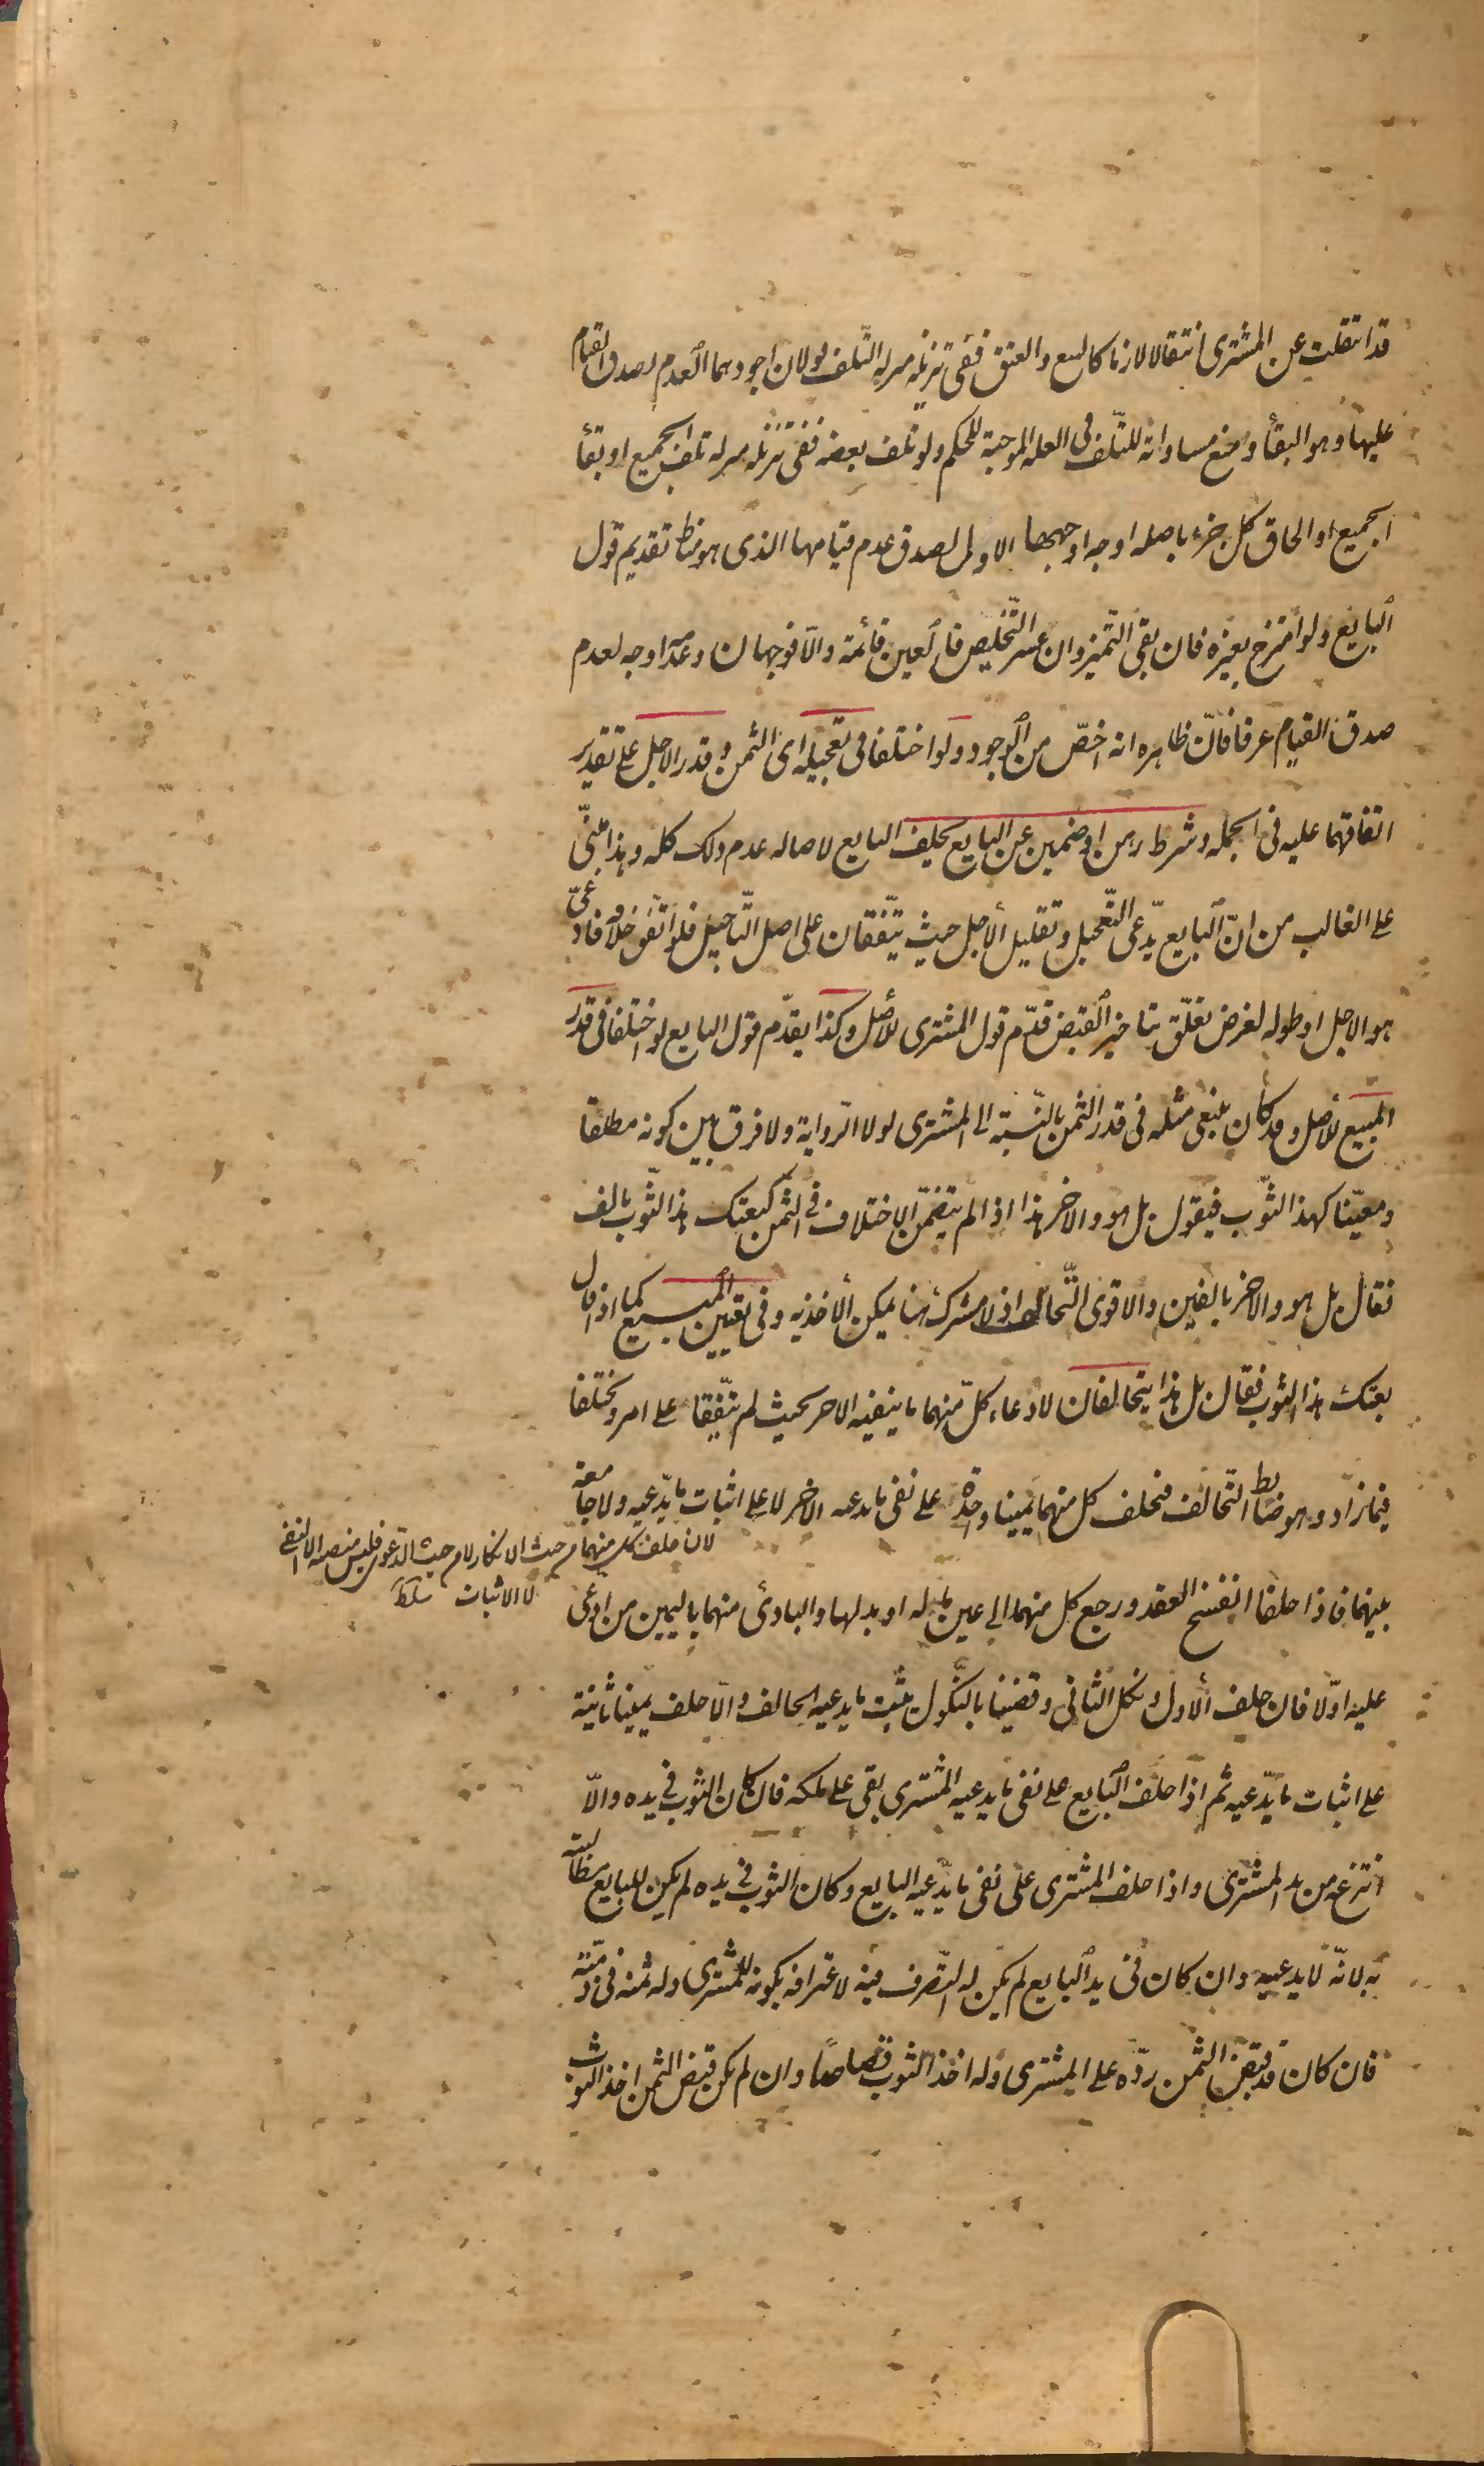 قد انتقلت عن المشتری انتقالا لازما کالبیع و العتق ففی تنزیله منزله التّلف قولان اجودهما العدم لصدق القیام
علیها و هو البقأ و منع مساواته للتّلف فی العله الموجبة للحکم و لو تلف بعضه ففی تنزیله منزله تلف الجمیع او بقأ
الجمیع او الحاق کل جزء باصله اوجه اوجهها الاول لصدق عدم قیامها الذی هو مناط تقدیم قول
البایع و لو امتزج بغیره فان بقی التّمیز و ان عسر التّخلیص فالعین قائمة و الّا فوجهان و عدمه اوجه لعدم
صدق القیام عرفا فانّ ظاهره انه اخصّ من الوجود و لو اختلفا فی تعجیله ای الثمن و قدر الاجل علی تقدیر
اتفاقهما علیه فی الجمله و شرط رهن او ضمین عن البایع یحلف البایع لاصاله عدم ذلک کله و هذا مبنیّ
علی الغالب من انّ البایع یدّعی التّعجیل و تقلیل الاجل حیث یتّفقان علی اصل التّاجیل فلو اتّفق خلافه فادّعی
هو الاجل او طوله لغرض یتعلّق بتاخیر القبض قدّم قول المشتری للأصل و کذا یقدّم قول البایع لو اختلفا فی قدر
المبیع للأصل و قد کان ینبغی مثله فی قدر الثمن بالنّسبة الی المشتری لولا الرّوایة و لا فرق بین کونه مطلقا
و معیّنا کهذا الثّوب فیقول بل هو و الاخر هذا اذا لم یتضمّن الاختلاف فی الثمن کبعتک هذا الثّوب بالف
فقال بل هو و الاخر بالفین و الاقوی التّحالف اذ لا مشترک هنا یمکن الأخذ به و فی تعیین المبیع کما اذا قال
بعتک هذا الثوب فقال بل هذا یتحالفان لادعاء کلّ منهما ما ینفیه الاخر بحیث لم یتّفقا علی امر و یختلفا
فیما زاد و هو ضابط التحالف فیحلف کل منهما یمینا واحدة علی نفی ما یدعیه الاخر لا علی اثبات ما یدّعیه و لا جامعة
لان حلف کل منهما من حیث الانکار لا من حیث الدّعوی فلیس منصبه الا النفی
لا الاثبات سلط
بینهما فاذا حلفا انفسخ العقد و رجع کل منهما الی عین ماله او بدلها و البادئ منهما بالیمین من ادّعی
علیه اوّلا فان حلف الاول و نکل الثانی و قضینا بالنّکول یثبت ما یدعیه الحالف و الّا حلف یمینا ثانیة
علی اثبات ما یدّعیه ثم اذا حلف البایع علی نفی ما یدعیه المشتری بقی علی ملکه فان کان الثوب فی یده و الّا
انتزعه من ید المشتری و اذا حلف المشتری علی نفی ما یدّعیه البایع و کان الثوب فی یده لم یکن للبایع مطالبته
به لانّه لا یدعیه و ان کان فی ید البایع لم یکن له التّصرف فیه لاعترافه بکونه للمشتری و له ثمنه فی ذمّته
فان کان قد قبض الثمن ردّه علی المشتری و له اخذ الثوب قصاصا و ان لم یکن قبض الثمن اخذ الثوب